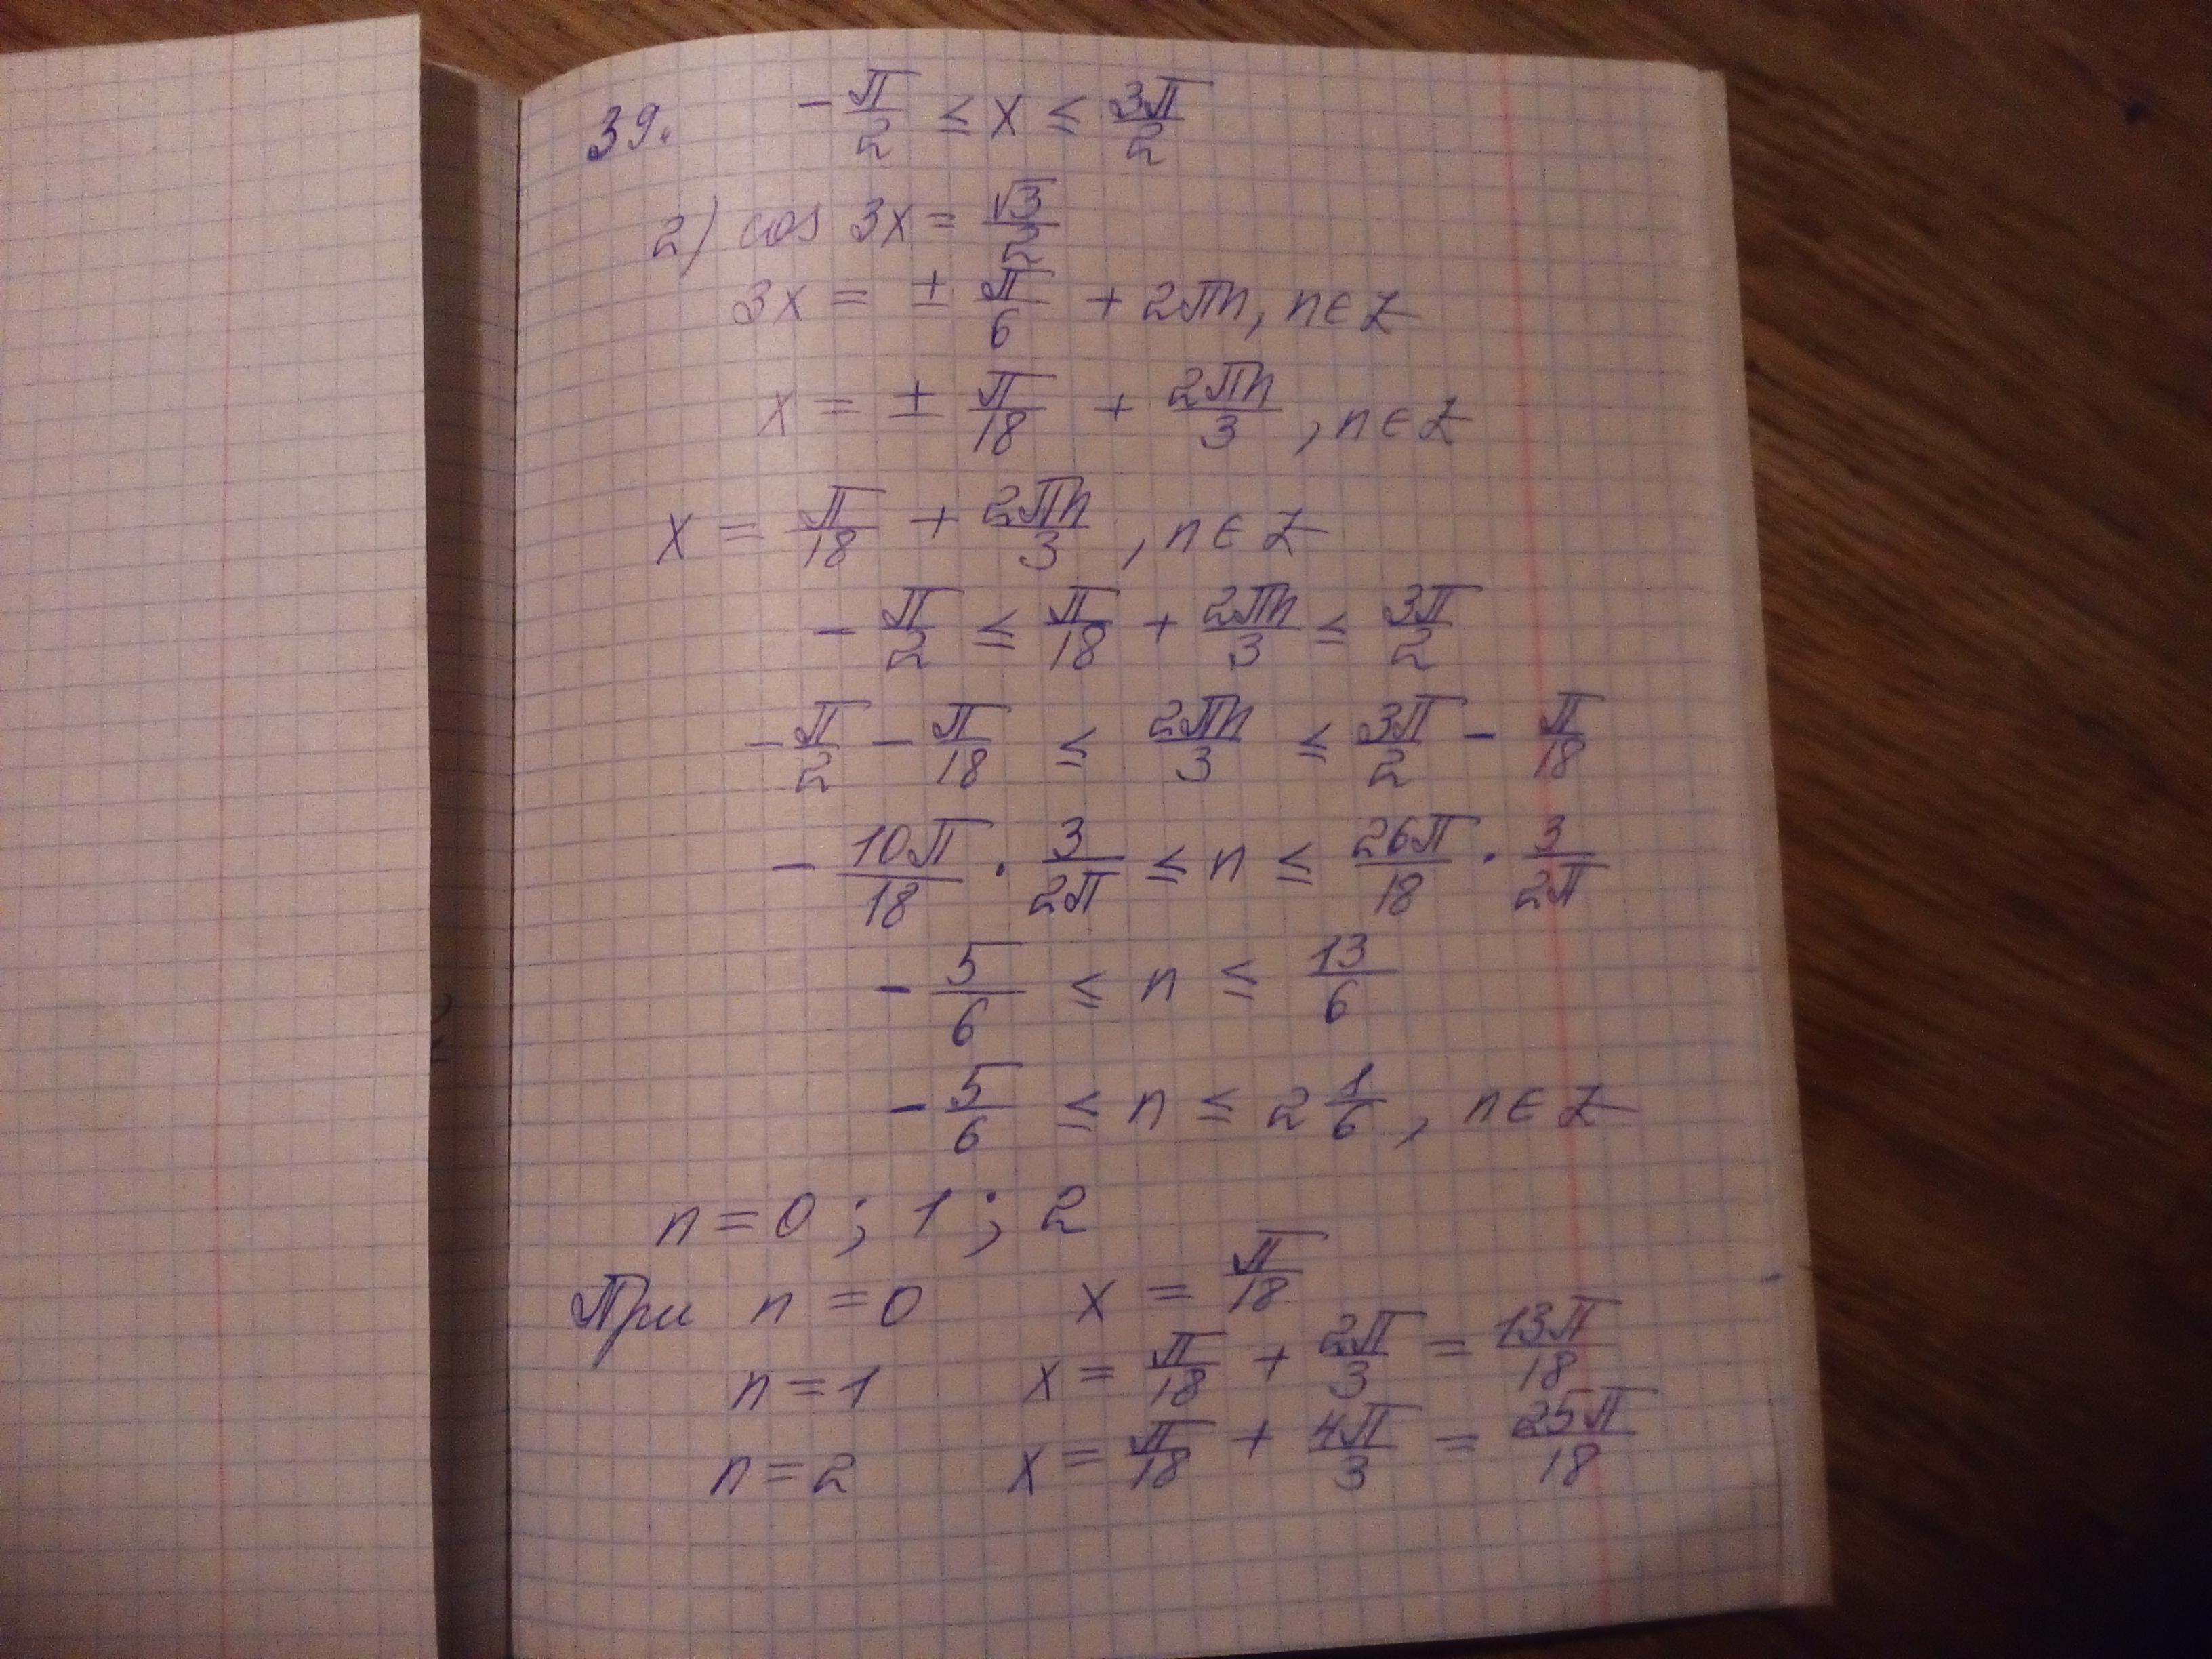 39. -π/2 ≤ x ≤ 3π/2
2) cos 3x = √3/2
3x = ± π/6 + 2πn, n∈Z
x = ± π/18 + 2πn/3, n∈Z
x = π/18 + 2πn/3, n∈Z
-π/2 ≤ π/18 + 2πn/3 ≤ 3π/2
-π/2 - π/18 ≤ 2πn/3 ≤ 3π/2 - π/18
-10π/18 · 3/2π ≤ n ≤ 26π/18 · 3/2π
-5/6 ≤ n ≤ 13/6
-5/6 ≤ n ≤ 2 1/6, n∈Z
n = 0; 1; 2
При n = 0 x = π/18
n = 1 x = π/18 + 2π/3 = 13π/18
n = 2 x = π/18 + 4π/3 = 25π/18